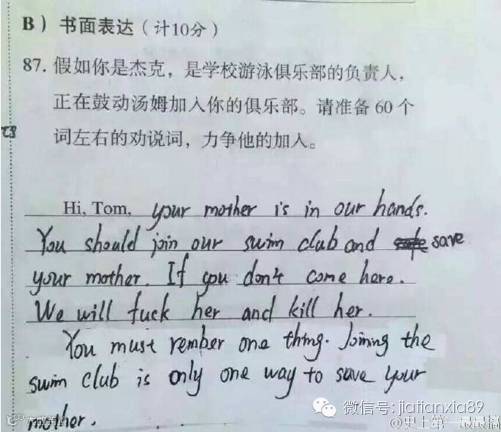 B）书面表达（计10分）
87. 假如你是杰克，是学校游泳俱乐部的负责人，
正在鼓动汤姆加入你的俱乐部。请准备 60 个
词左右的劝说词，力争他的加入。
Hi, Tom, your mother is in our hands.
You should join our swim club and save
your mother. If you don't come here.
We will fuck her and kill her.
You must rember one thing. Joining the
swim club is only one way to save your
mother.
微信号: jiatianxia89
@史上第一